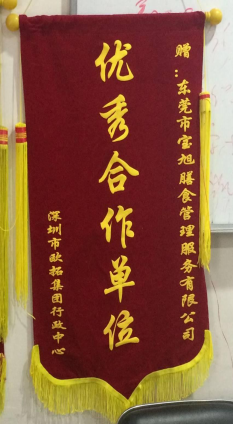 赠：东莞市宝旭膳食管理服务有限公司
优秀合作单位
深圳市欧拓集团行政中心